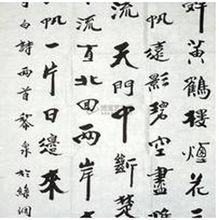 黃鶴樓煙花三
帆遠影碧空盡
流天門中斷楚
流直北回兩岸
帆一片日邊來
白詩兩首黎泉於